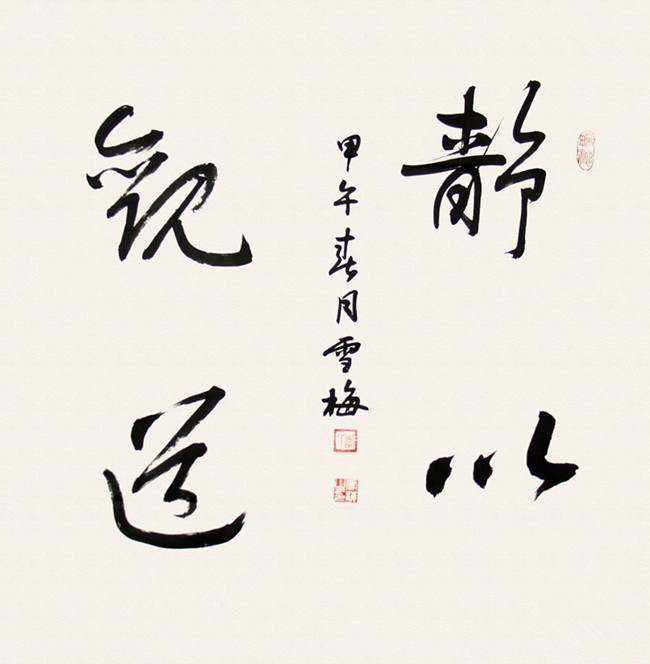 靜以
甲午春月雪梅
觀道